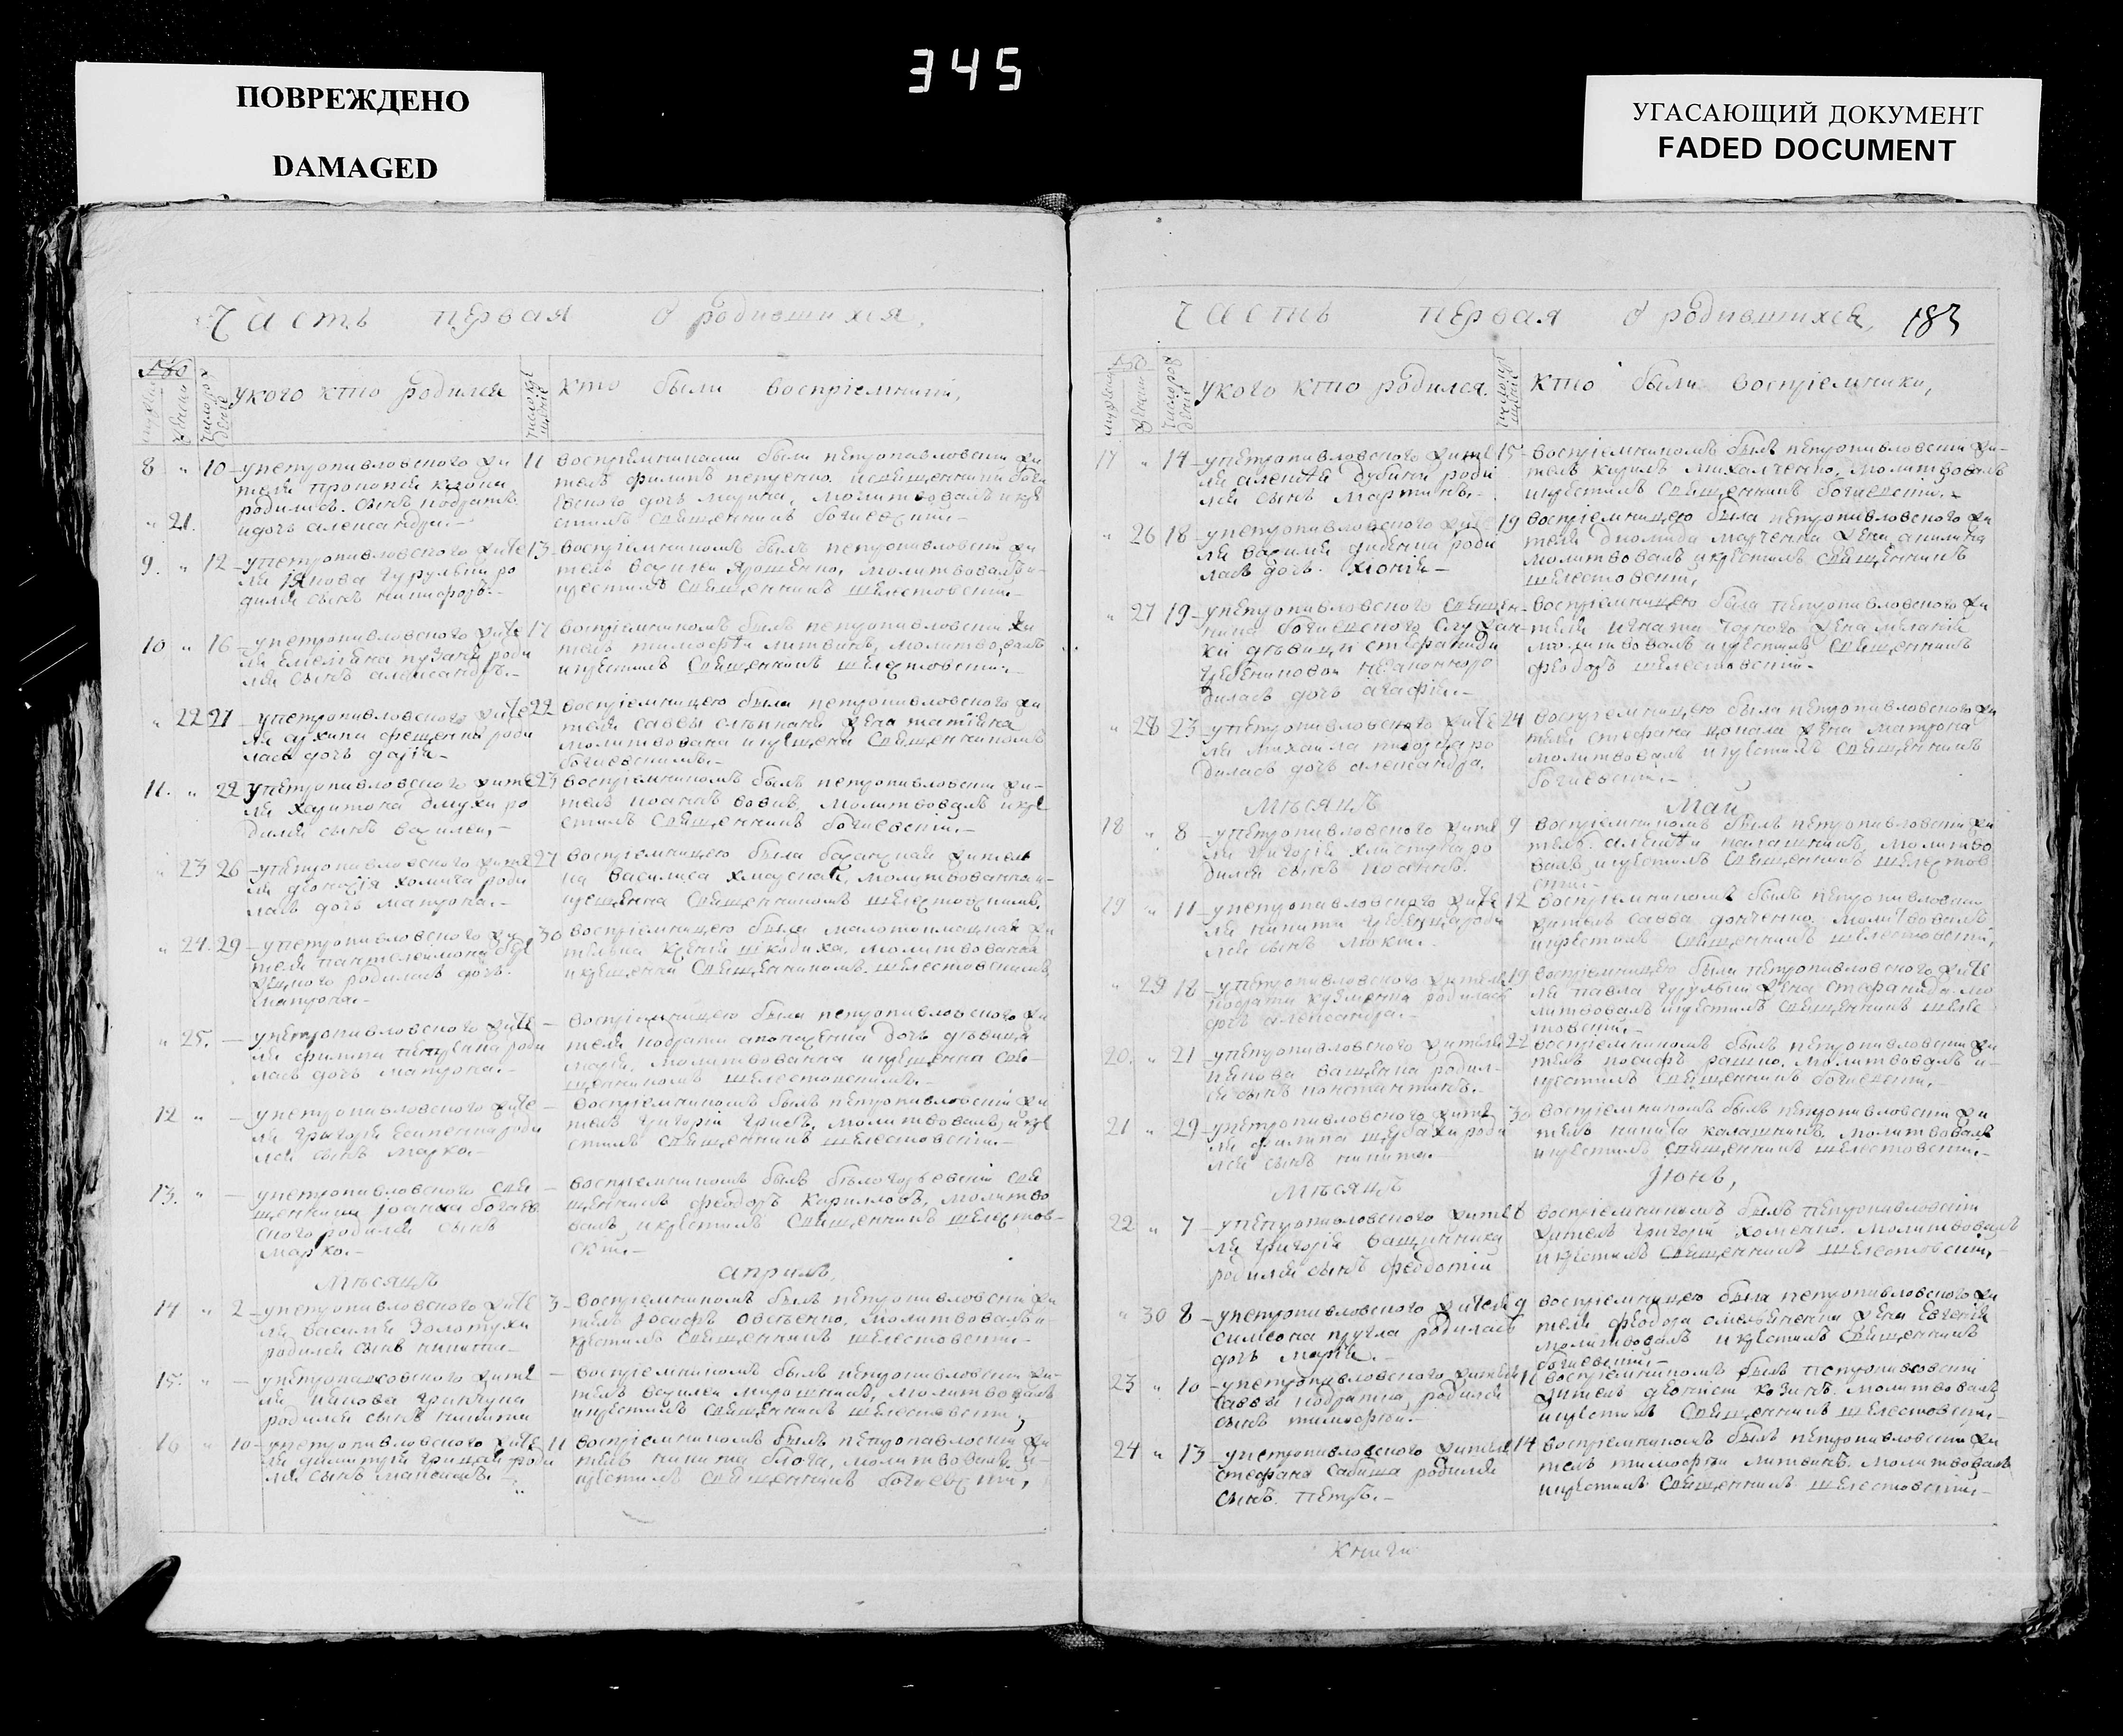 345
ПОВРЕЖДЕНО
DAMAGED
УГАСАЮЩИЙ ДОКУМЕНТ
FADED DOCUMENT
Часть первая о родившихся,
у кого кто родился
кто были воспріемники,
8 " 10 упетропавловского жи
теля прокопія
родились. сынъ кодратъ
" 21. и дочь александра.
11 воспріемниками были петропавловскій жи
тель филипъ петренко. и священника боги
евского дочь марина, молитвовалъ и кре
стилъ священникъ богиевскій
9. " 12 упетропавловского жите
ля якова гурульки ро
дился сынъ никифоръ.
13 воспріемникомъ былъ петропавловскій жи
тель василій ярошенко, молитвовалъ и
крестилъ священникъ шелестовскій
10 " 16 упетропавловского жите
ля емельяна пузана роди
лся сынъ александръ.
17 воспріемникомъ былъ петропавловскій жи
тель тимофѣй литвинъ, молитвовалъ
и крестилъ священникъ шелестовскій.
" 22 21 упетропавловского жите
ля архипа роди
лась дочь дарія.
22 воспріемницею была петропавловского жи
теля саввы жена татіана
молитвована и крещена священникомъ
богиевскимъ.
11. " 22 упетропавловского жите
ля харитона ро
дился сынъ василій,
23 воспріемникомъ былъ петропавловскій жи
тель иоаннъ вовкъ, молитвовалъ и кре
стилъ священникъ богиевскій.
" 23 26 упетропавловского жите
ля діонисія хомича роди
лась дочь матрона.
27 воспріемницею была житель
ка василиса молитвованна и
крещенна священникомъ шелестовскимъ.
" 24. 29 упетропавловского жи
теля пантелеимона
родилась дочь
матрона.
30 воспріемницею была жи
телька ксенія молитвованна
и крещенна священникомъ шелестовскимъ
" 25. — упетропавловского жите
ля филипа петренка роди
лась дочь матрона.
воспріемницею была петропавловского жи
теля кодрата дочь дѣвица
марія, молитвованна и крещенна свя
щенникомъ шелестовскимъ.
12 " — упетропавловского жите
ля григорія есипенка роди
лся сынъ марко.
воспріемникомъ былъ петропавловскій жи
тель григорій грибъ, молитвовалъ и кре
стилъ священникъ шелестовскій.
13. " — упетропавловского свя
щенника іоанна богиев
ского родился сынъ
марко.
воспріемникомъ былъ свя
щенникъ феодоръ кириловъ, молитво
валъ и крестилъ священникъ шелестов
скій.
Мѣсяцъ
априль,
14 " 2 упетропавловского жите
ля василія золотухи
родился сынъ никита
3 воспріемникомъ былъ петропавловскій жи
тель іосифъ молитвовалъ и
крестилъ священникъ шелестовскій
15. " — упетропавловского жите
ля иакова
родился сынъ никита
воспріемникомъ былъ петропавловскій жи
тель василій мирошникъ, молитвовалъ
и крестилъ священникъ шелестовскій,
16 " 10 упетропавловского жите
ля димитрія грицая роди
лся сынъ максимъ.
11 воспріемникомъ былъ петропавловскій жи
тель никита блоха, молитвовалъ и
крестилъ священникъ богиевскій,
Часть первая о родившихся, 183
у кого кто родился.
кто были воспріемники,
17 " 14 упетропавловского жите
ля алексѣя дубини роди
лся сынъ мартинъ.
15 воспріемникомъ былъ петропавловскій жи
тель кирилъ михальченко, молитвовалъ
и крестилъ священникъ богиевскій.
" 26 18 упетропавловского жите
ля василія диденка роди
лась дочь хіонія
19 воспріемницею была петропавловского жи
теля диомида марченка жена акилина
молитвовалъ и крестилъ священникъ
шелестовскій,
" 27 19 упетропавловского священ
ника богиевского служан
ки дѣвицы стефаниды
незаконно ро
дилась дочь агафія.
воспріемницею была петропавловского жи
теля игната чорного жена меланія
молитвовалъ и крестилъ священникъ
феодоръ шелестовскій.
" 28 23 упетропавловского жите
ля михаила ро
дилась дочь александра.
24 воспріемницею была петропавловского жи
теля стефана жена матрона
молитвовалъ и крестилъ священникъ
богиевскій.
Мѣсяцъ
Май
18 " 8 упетропавловского жите
ля григорія ро
дился сынъ иоаннъ.
9 воспріемникомъ былъ петропавловскій жи
тель алексѣй калашникъ, молитво
валъ и крестилъ священникъ шелестов
скій.
19 " 11 упетропавловского жите
ля никити роди
лся сынъ лука.
12 воспріемникомъ былъ петропавловскій
житель савва донченко молитвовалъ
и крестилъ священникъ шелестовскій,
" 29 18 упетропавловского жителя
кодрата кузменка родилась
дочь александра.
19 воспріемницею была петропавловского жите
ля павла гурульки жена стефанида мо
литвовалъ и крестилъ священникъ шеле
стовскій.
20. " 21 упетропавловского жителя
иакова ващенка родил
ся сынъ константинъ.
22 воспріемникомъ былъ петропавловскій жи
тель иосифъ рашко. молитвовалъ и
крестилъ священникъ богиевскій.
21 " 29 упетропавловского жите
ля филипа щербахи роди
лся сынъ никита.
30 воспріемникомъ былъ петропавловскій жи
тель никита калашникъ. молитвовалъ
и крестилъ священникъ шелестовскій.
Мѣсяцъ
Іюнь,
22 " 7 упетропавловского жите
ля григорія
родился сынъ феодотій
8 воспріемникомъ былъ петропавловскій
житель григорій хоменко. молитвовалъ
и крестилъ священникъ шелестовскій,
" 30 8 упетропавловского жителя
симеона родилась
дочь марія.
9 воспріемницею была петропавловского жи
теля феодора омельяненка жена евгенія
молитвовалъ и крестилъ священникъ
богиевскій.
23 " 10 упетропавловского жителя
саввы кодратка, родился
сынъ тимофей.
11 воспріемникомъ былъ петропавловскій
житель діонисій козинъ. молитвовалъ
и крестилъ священникъ шелестовскій
24 " 13 упетропавловского жителя
стефана сабаша родился
сынъ петръ.
14 воспріемникомъ былъ петропавловскій жи
тель тимофей литвинъ. молитвовалъ
и крестилъ священникъ шелестовскій
Книги